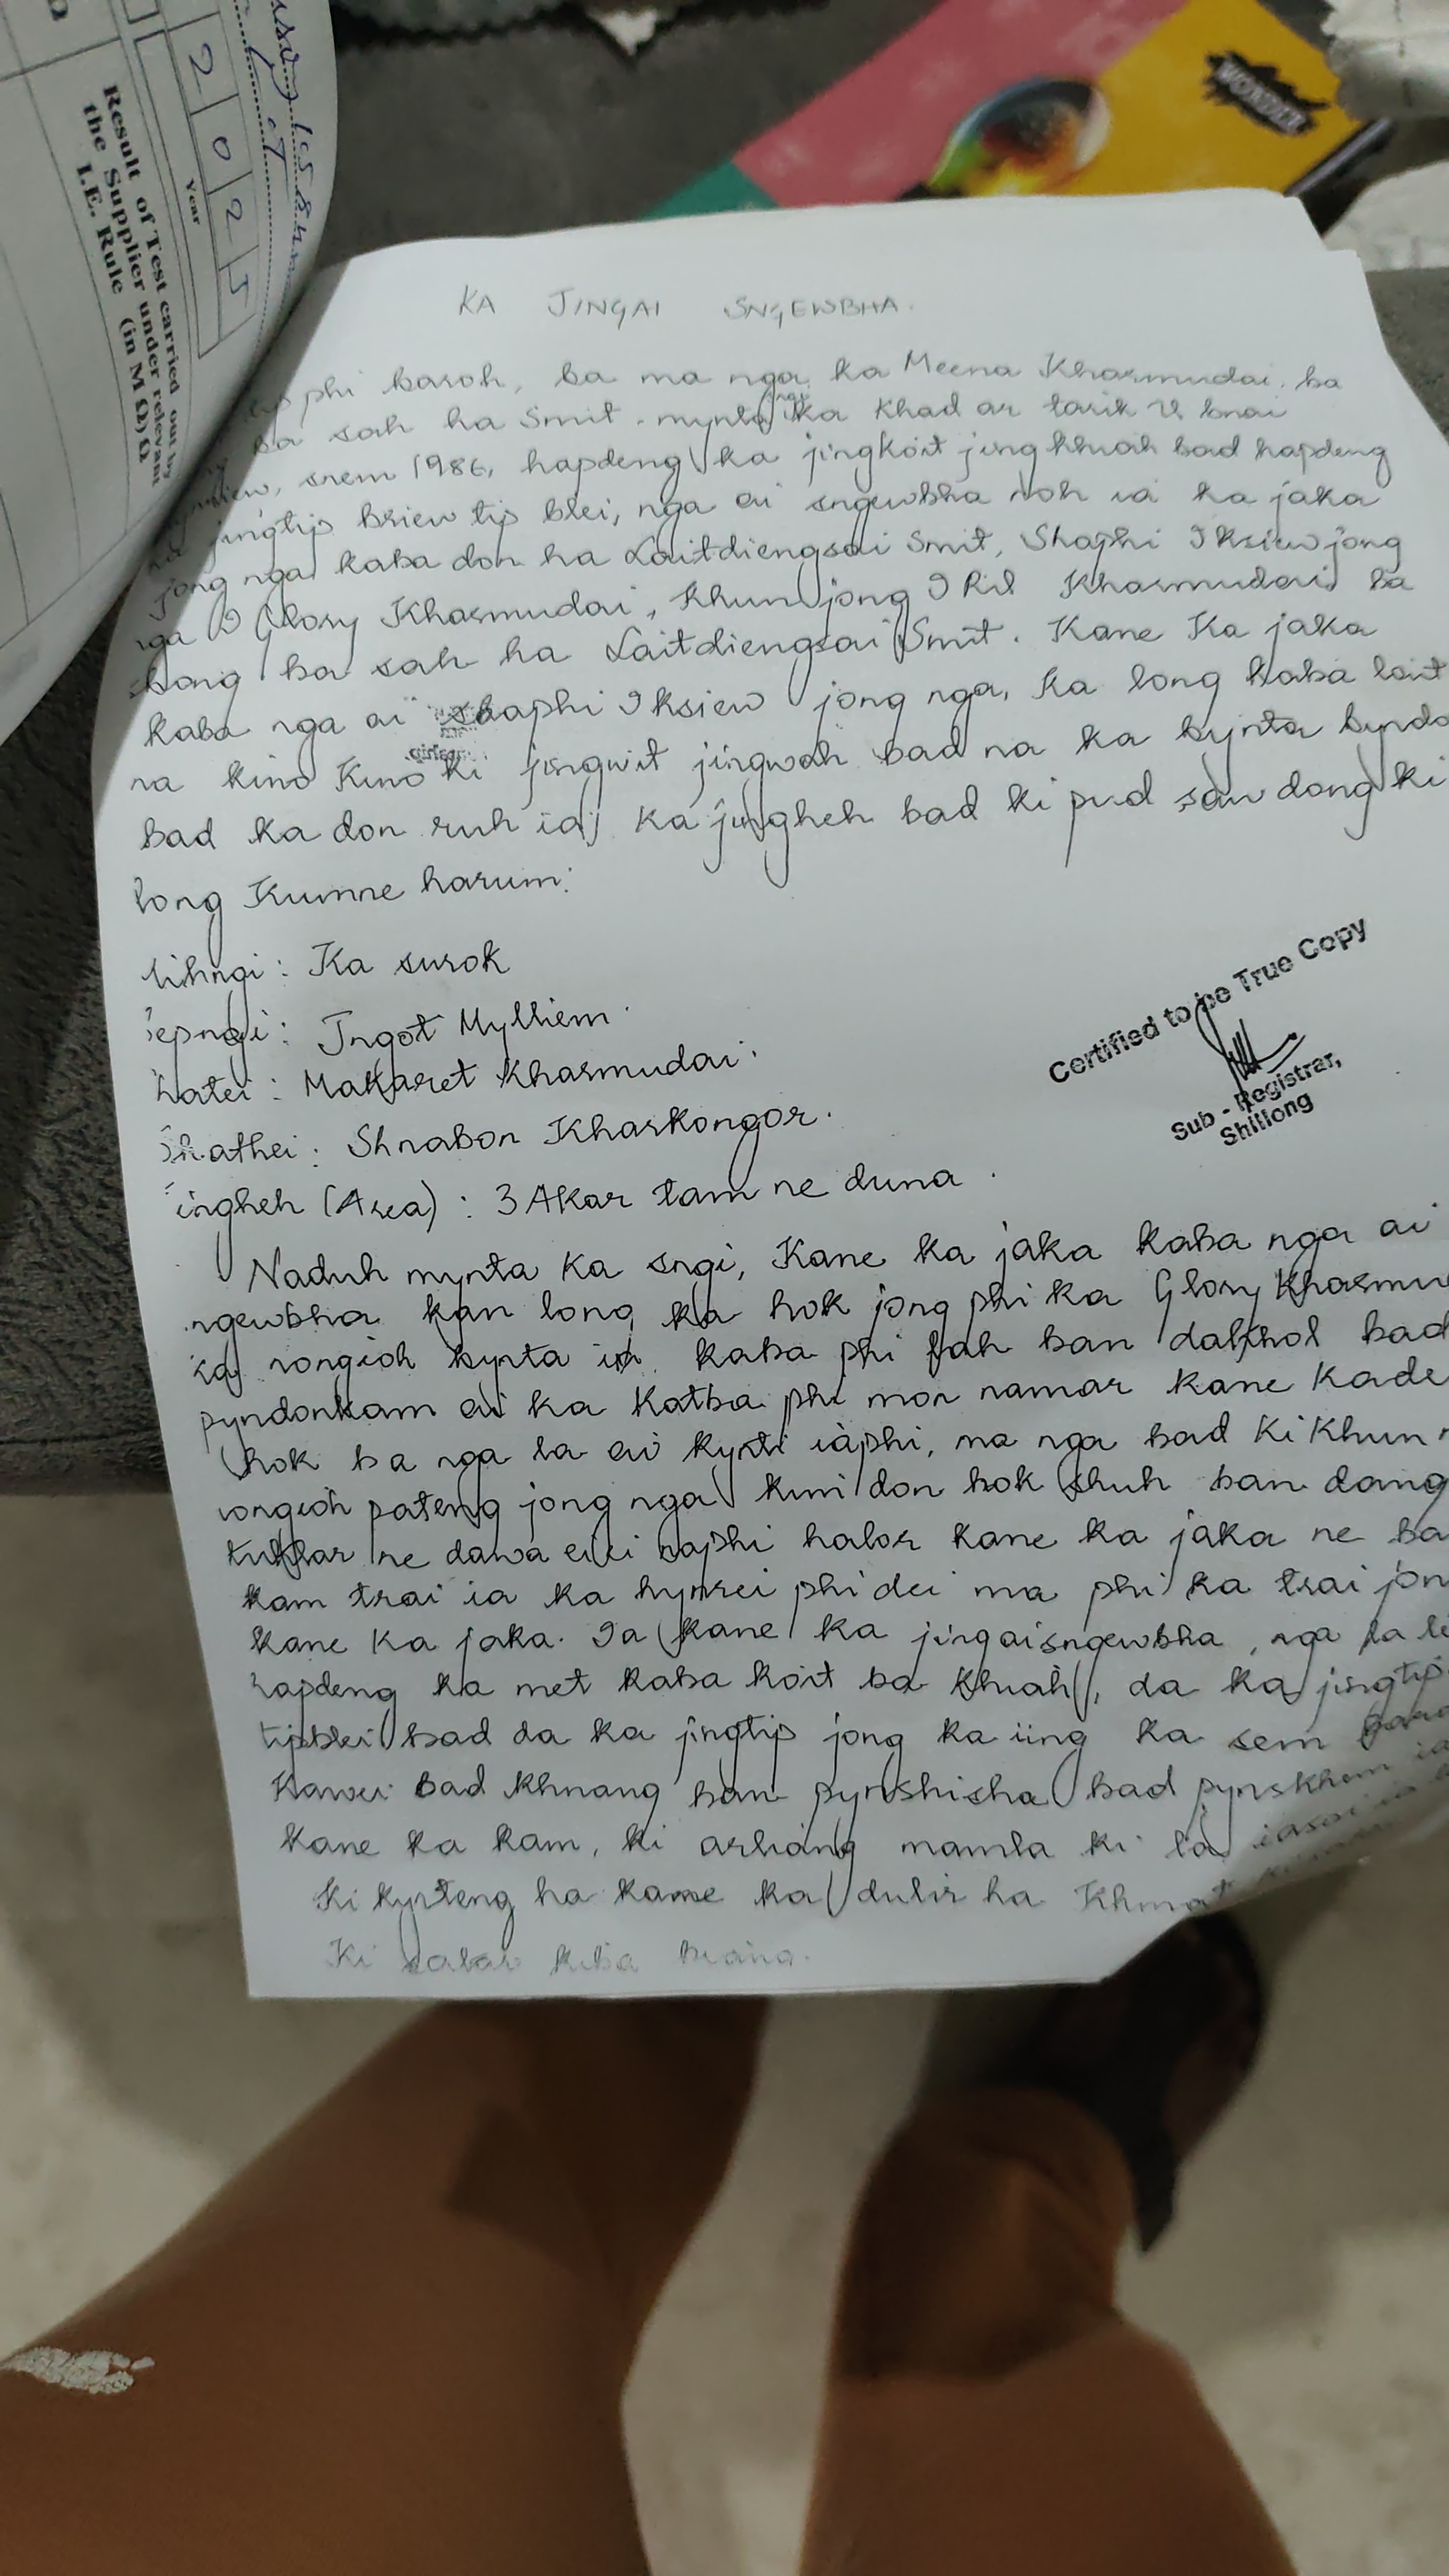 2 0 2 5
Year
Result of Test carried out by
the Supplier under relevant
I.E. Rule (in M Ω) Ω
WONDER
KA JINGAI SNGEWBHA.
phi baroh, ba ma nga ka Meena Kharmudai, ba
ba sah ha Smit. mynta ka Khad ar tarik U bnai
snem 1986, hapdeng ka jingkoit jingkhiah bad hapdeng
jingtip briew tip blei, nga ai sngewbha noh ia ka jaka
jong nga kaba don ha Laitdiengsai Smit, Shaphi I ksiew jong
nga I Glory Kharmudai, Khun jong I Ril Kharmudai ba
shong ba sah ha Laitdiengsai Smit. Kane Ka jaka
kaba nga ai shaphi I ksiew jong nga, ka long kaba lait
na kino Kino ki jingwit jingwah bad na ka bynta
bad ka don ruh ia ka jingheh bad ki pud saw dong ki
long Kumne harum:
Ka surok
Ingot Mylliem
Makaret Kharmudai
Shnabon Kharkongor.
ingheh (Area) : 3 Akar tam ne duna
Naduh mynta ka sngi, Kane ka jaka kaba nga ai
ngewbha kan long ka hok jong phi ka Glory
ka rongioh bynta ia kaba phi lah ban dakhol bad
pyndonkam ei ka Katba phi mon namar kane
hok ba nga la ai kynti iaphi, ma nga bad Ki Khun
pateng jong nga kim don hok shuh ban dang
ne dawa eiei naphi halor kane ka jaka ne
kam trai ia ka hynrei phi dei ma phi ka trai
kane Ka jaka. Ia kane ka jingaisngewbha, nga la
hapdeng ka met kaba koit ba khiah, da ka jingtip
tipblei bad da ka jingtip jong ka iing ka sem
Kawei bad khnang ban pynshisha bad pynskhem ia
kane ka kam, ki arliang mamla ki la
Ki kyrteng ha kane ka dulir ha Khmat
Ki sabai kiba biang.
Certified to be True Copy
Sub - Registrar,
Shillong